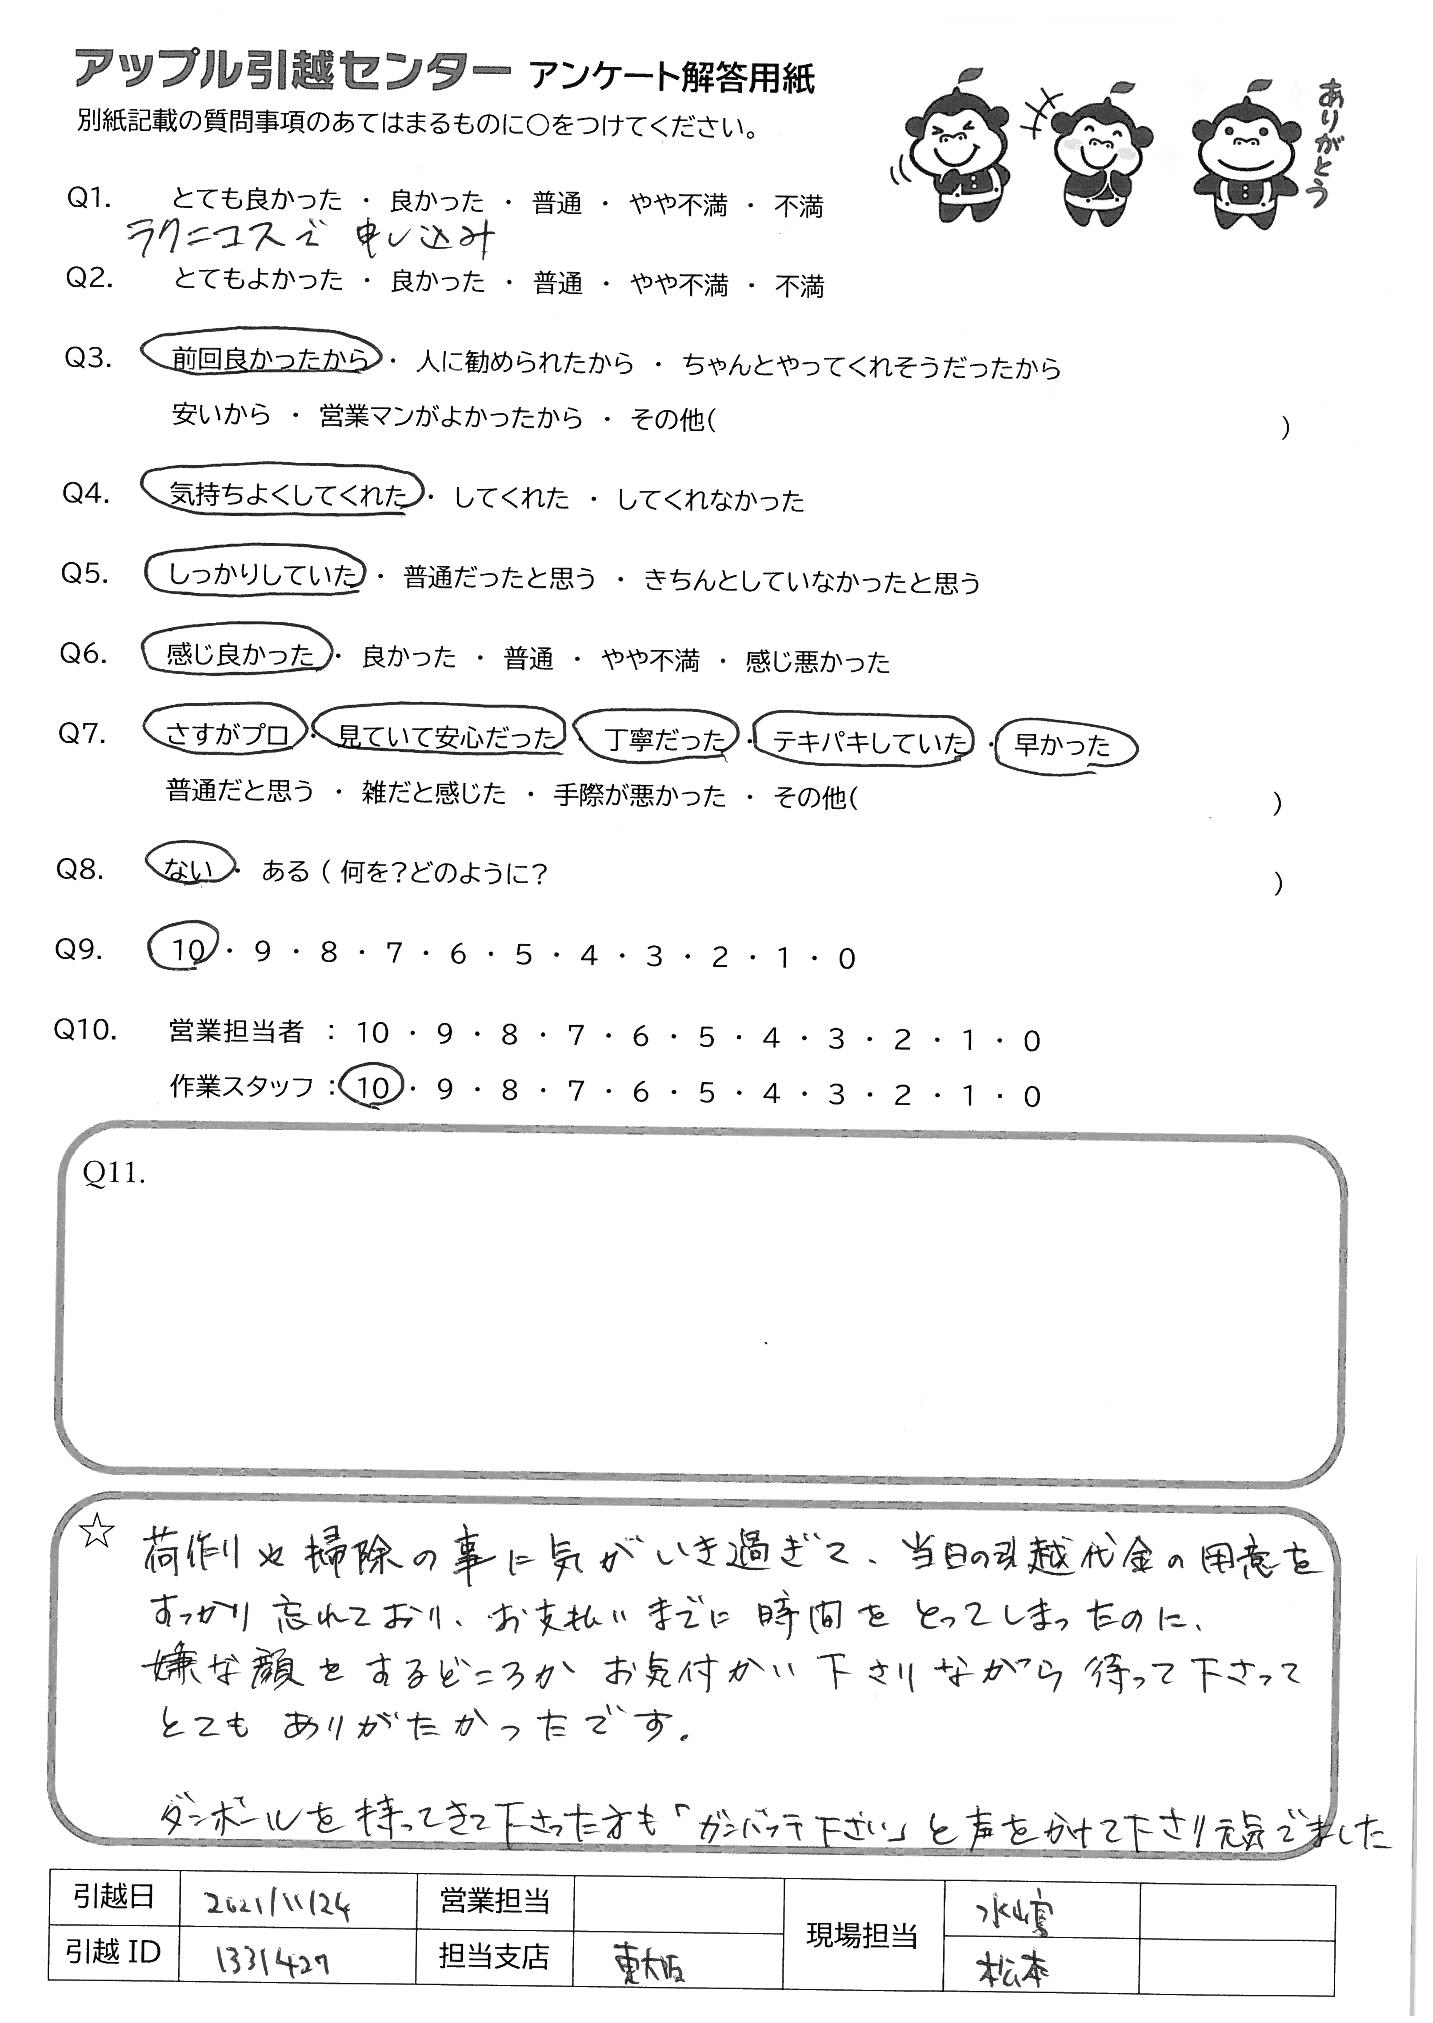 アップル引越センター アンケート解答用紙
別紙記載の質問事項のあてはまるものに〇をつけてください。
ありがとう
Q1. とても良かった ・ 良かった ・ 普通 ・ やや不満 ・ 不満
ラクニコスで 申し込み
Q2. とてもよかった ・ 良かった ・ 普通 ・ やや不満 ・ 不満
Q3. 前回良かったから ・ 人に勧められたから ・ ちゃんとやってくれそうだったから
安いから ・ 営業マンがよかったから ・ その他( )
Q4. 気持ちよくしてくれた ・ してくれた ・ してくれなかった
Q5. しっかりしていた ・ 普通だったと思う ・ きちんとしていなかったと思う
Q6. 感じ良かった ・ 良かった ・ 普通 ・ やや不満 ・ 感じ悪かった
Q7. さすがプロ ・ 見ていて安心だった ・ 丁寧だった ・ テキパキしていた ・ 早かった
普通だと思う ・ 雑だと感じた ・ 手際が悪かった ・ その他( )
Q8. ない ・ ある ( 何を?どのように? )
Q9. 10 ・ 9 ・ 8 ・ 7 ・ 6 ・ 5 ・ 4 ・ 3 ・ 2 ・ 1 ・ 0
Q10. 営業担当者 : 10 ・ 9 ・ 8 ・ 7 ・ 6 ・ 5 ・ 4 ・ 3 ・ 2 ・ 1 ・ 0
作業スタッフ : 10 ・ 9 ・ 8 ・ 7 ・ 6 ・ 5 ・ 4 ・ 3 ・ 2 ・ 1 ・ 0
Q11.
☆ 荷作りや掃除の事に気がいき過ぎて、当日の引越代金の用意を
すっかり忘れており、お支払いまでに時間をとってしまったのに、
嫌な顔をするどころかお気付かい下さりながら待って下さって
とてもありがたかったです。
ダンボールを持ってきて下さった方も「ガンバッテ下さい」と声をかけて下さり元気でました
引越日 2021/11/24 営業担当 現場担当 水嶌
引越 ID 1331427 担当支店 東大阪 松本